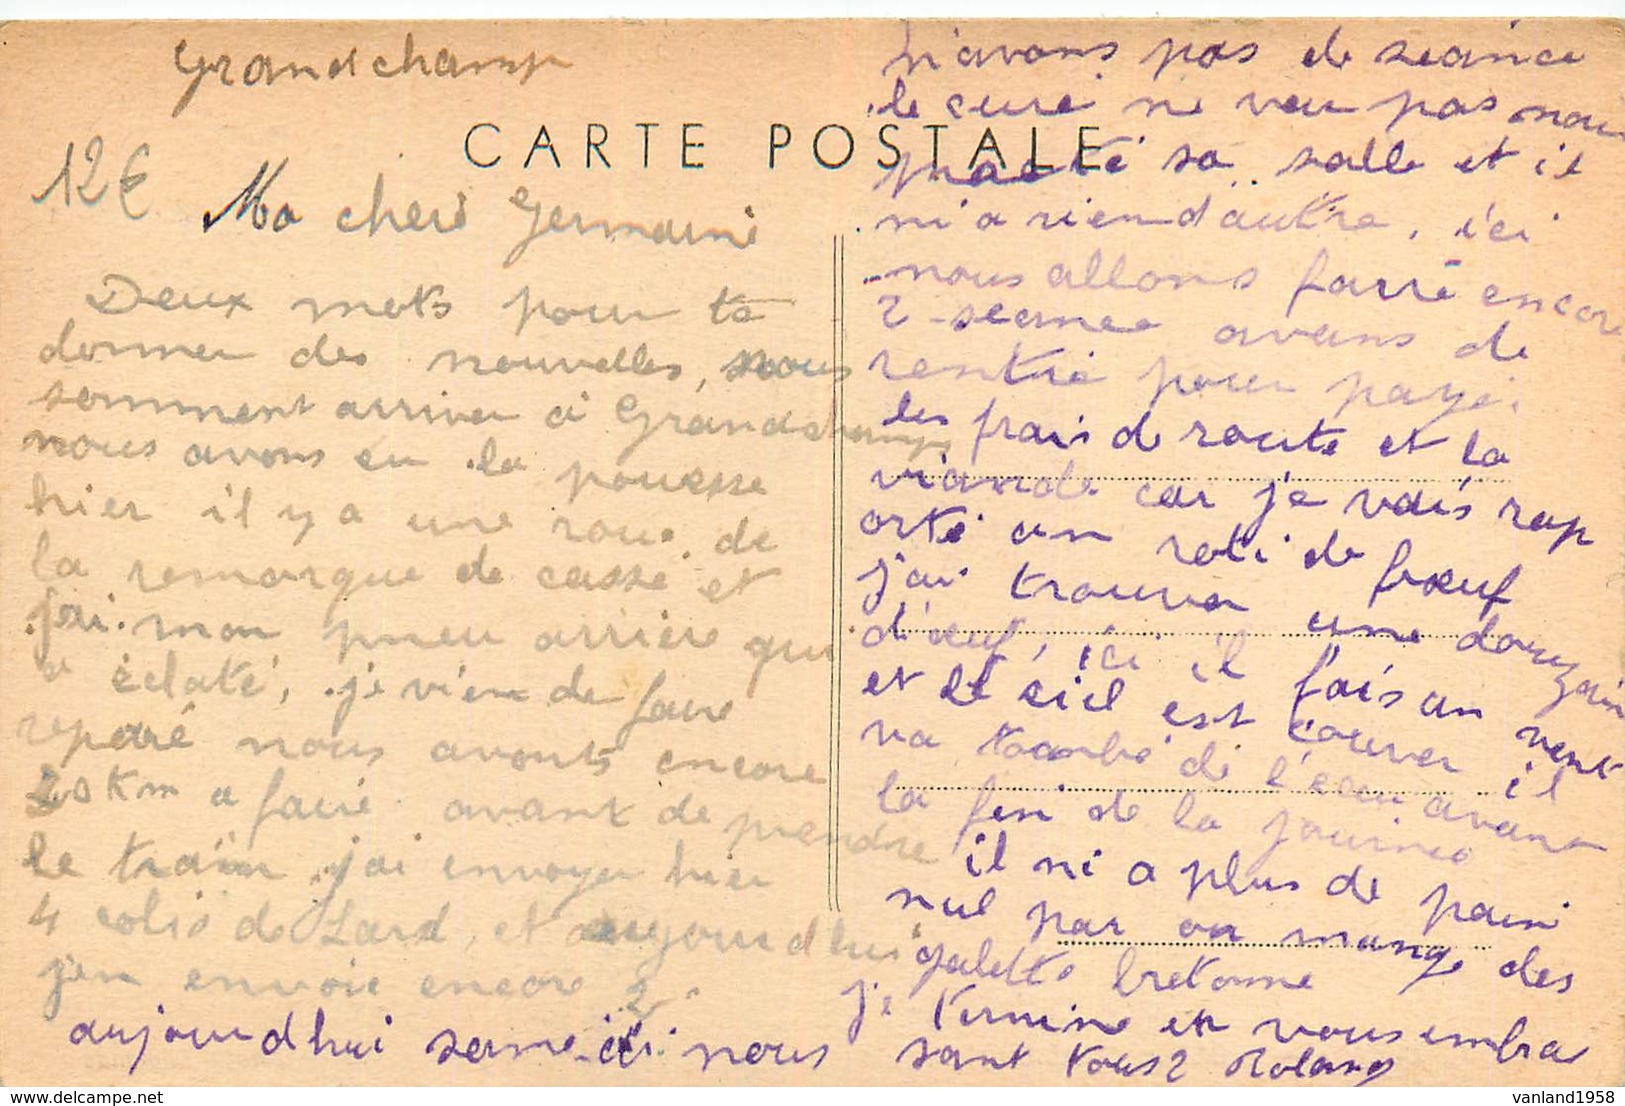 Grandchamp
CARTE POSTALE
12€
Ma cheri Germaine
Deux mots pour te
donner des nouvelles, nous
somment arriver à Grandchamps
nous avons eu la pouesse
hier il y a une roue de
la remorque de cassé et
j'ai mon pneu arriere qui
a éclaté, je viens de faire
reparé nous avonts encore
20 Km a faire avant de prendre
le train, j'ai envoyer hier
4 colis de Lard, et aujourd'hui
j'en envoie encore 2.
aujourd hui samedi nous
n'avons pas de séance
le curé ne veu pas nous
praeté sa salle et il
ni a rien d'autre, ici
nous allons fairé encore
2 séance avans de
rentré pour payé
les frais de route et la
viande car je vais rap
orté un roti de boeuf
j'ai trouver une douzain
d'œuf, ici il fais un vent
et le ciel est couver il
va tombé de l'eau avant
la fin de la journée
il ni a plus de pain
nul par on mange des
galette bretonne
je termine en vous embra
sant tous 2 Roland
vanland1958